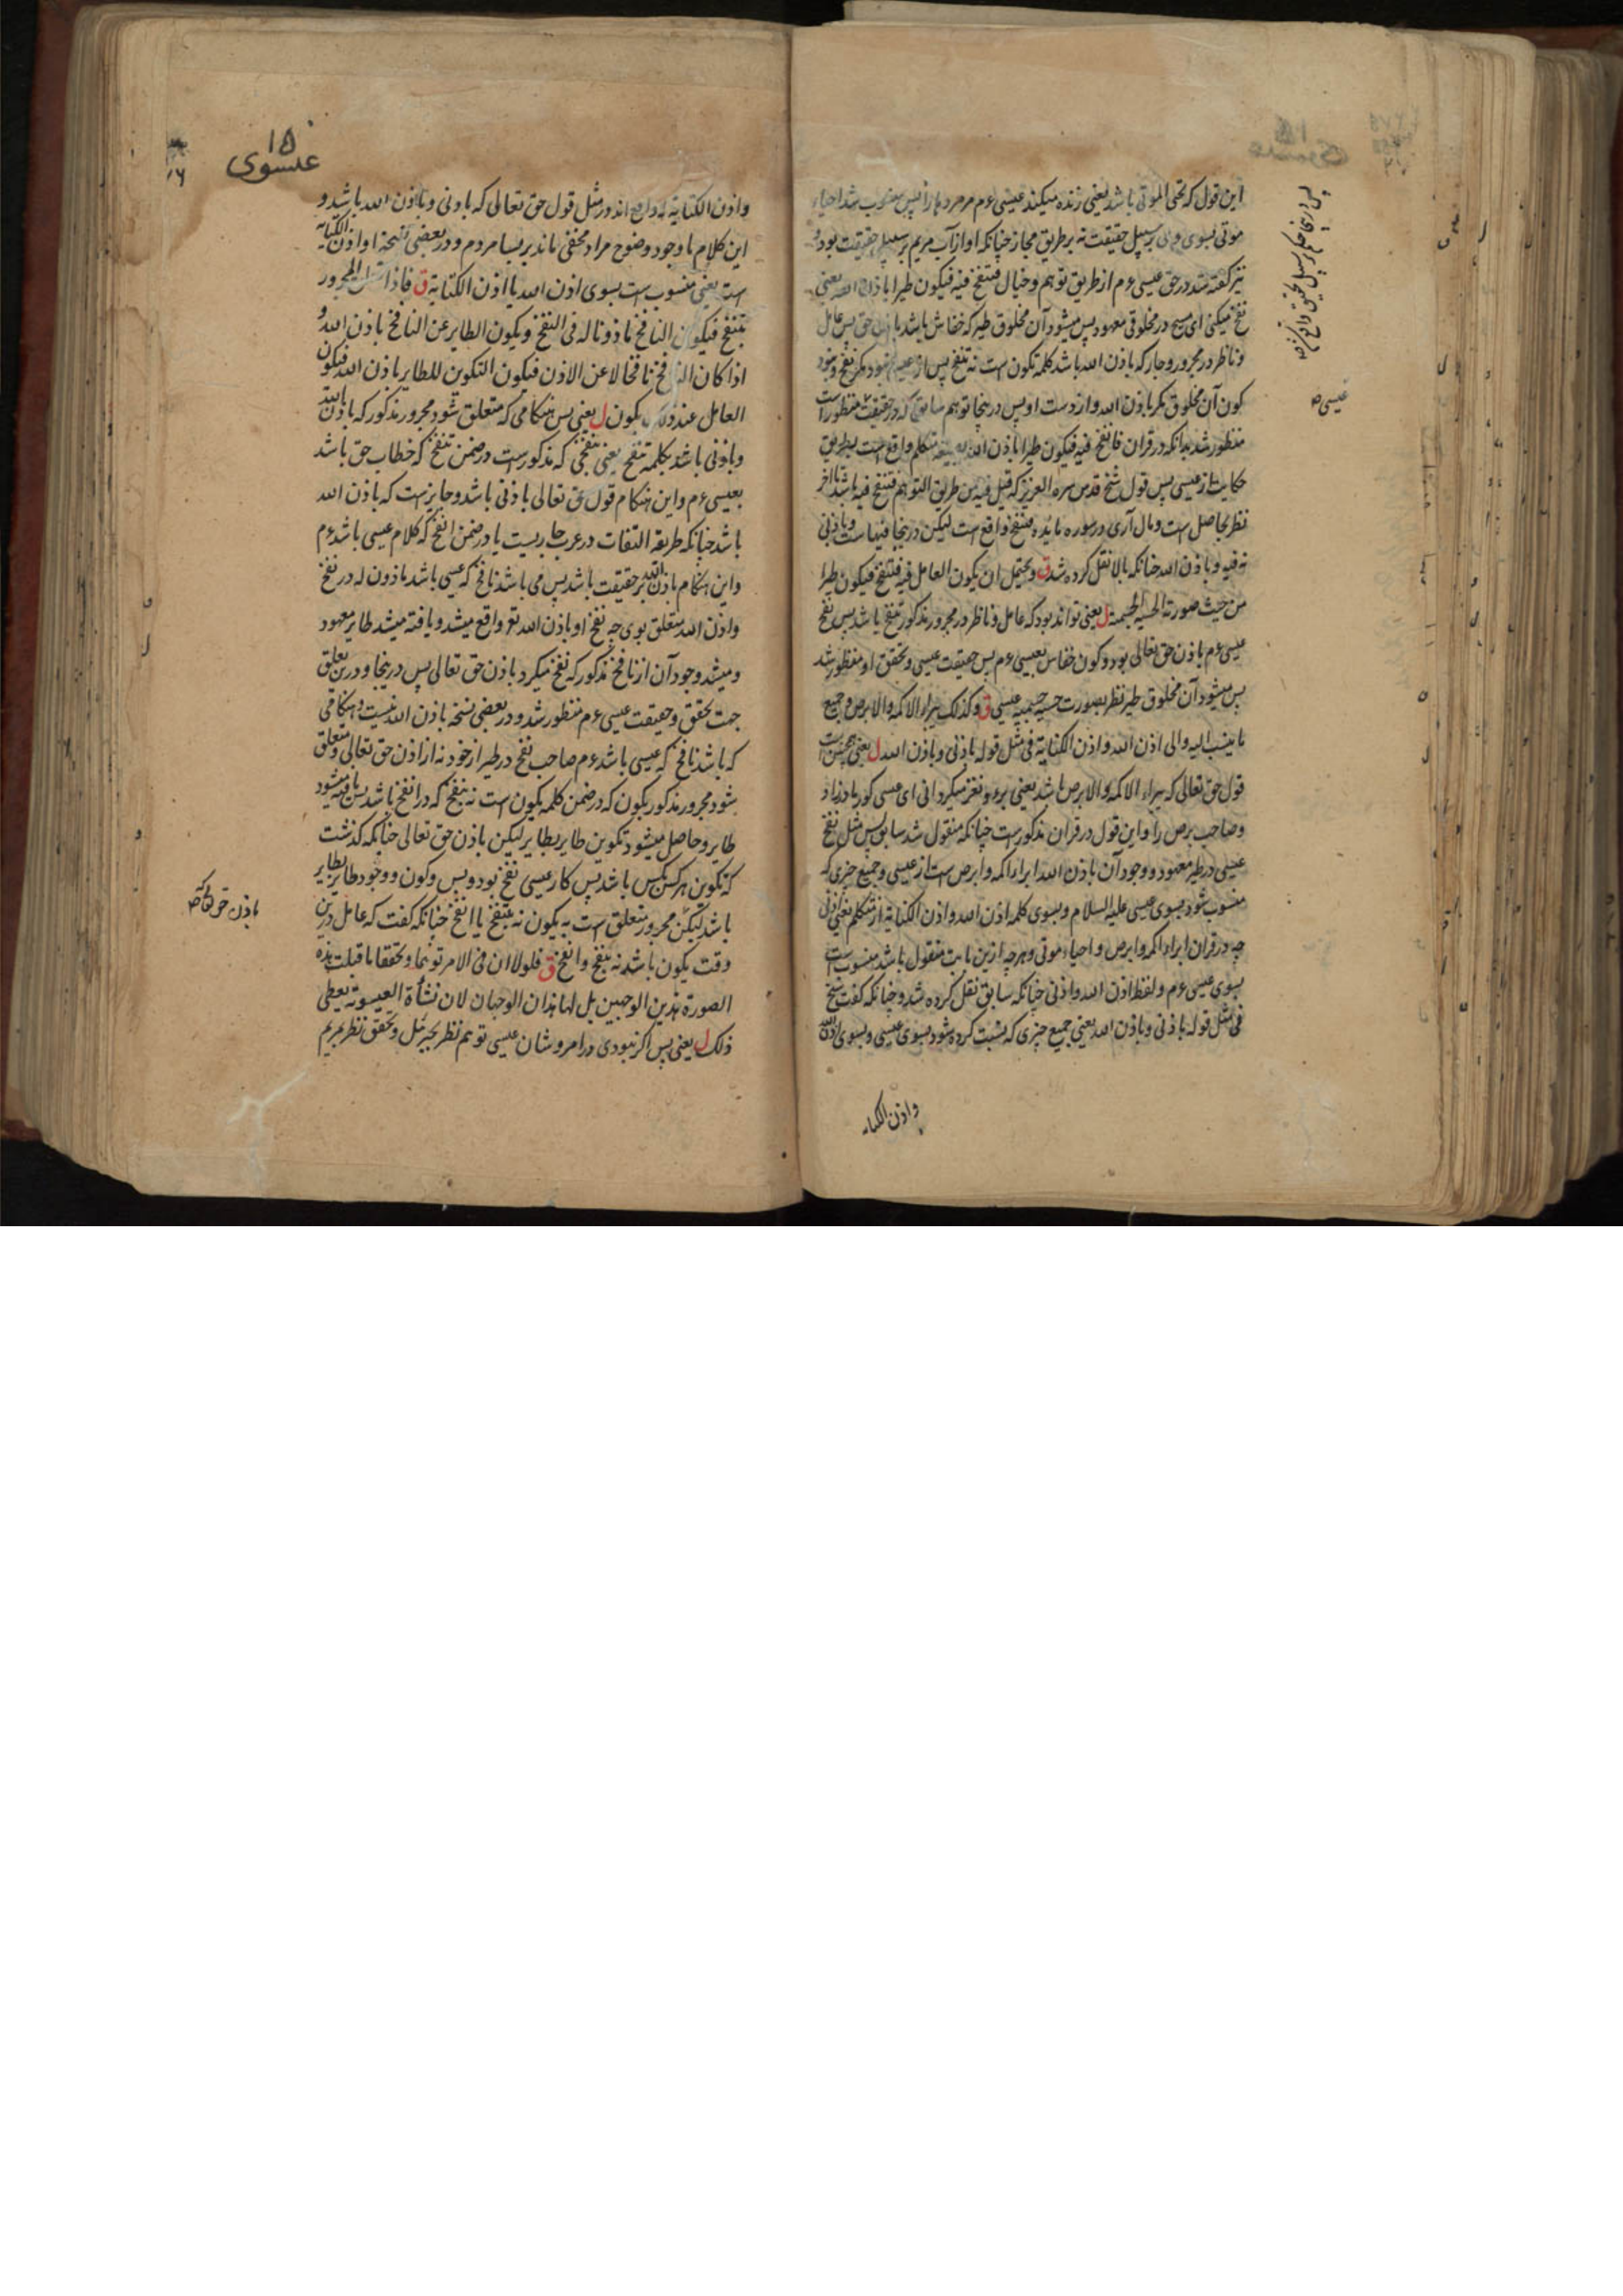 این قول که تحی الموتی باشد یعنی زنده میکند عیسی ءم مر مردها را پس منسوب شد احیاء
موتی بسوی وی بر سبیل حقیقت نه بر طریق مجاز چنانکه او از آب مریم بر سبیل حقیقت بود و
نیز گفته شد در حق عیسی ءم از طریق توهم و خیال فتنفخ فیه فیکون طیرا باذن الله یعنی
نفخ میکنی ای مسیح در مخلوقی معهود پس میشود آن مخلوق طیر که خفاش باشد باذن حق پس عامل
و ناظر در مجرور و جار که باذن الله باشد کلمه تکون است نه تنفخ پس از عیسی نبود مگر نفخ و نبود
کون آن مخلوق مگر باذن الله و از دست او پس درینجا توهم سابق که در حقیقت منظور است
منظور شد بدانکه در قران فانفخ فیه فیکون طیرا باذن الله بصیغه متکلم واقع است بطریق
حکایت از عیسی پس قول شیخ قدس سره العزیز که قیل فیه من طریق التوهم فتنفخ فیه باشد تا آخر
نظر بحاصل است و مال آری در سوره مایده فتنفخ واقع است لیکن درینجا فیها است و باذنی
نه فیه و باذن الله چنانکه بالا نقل کرده شد ق و یحتمل ان یکون العامل فیه فتنفخ فیکون طیرا
من حیث صورته الحسیه الجسمیة ل یعنی تواند بود که عامل و ناظر در مجرور مذکور تنفخ باشد پس نفخ
عیسی ءم باذن حق تعالی بود و کون خفاش بعیسی ءم پس حقیقت عیسی و تحقق او منظور شد
پس میشود آن مخلوق طیر نظر بصورت حسیه جسمیه عیسی ق و کذلک یبراء الاکمه والابرص و جمیع
ما ینسب الیه والی اذن الله و اذن الکنایة فی مثل قوله باذنی و باذن الله ل یعنی همچنین است
قول حق تعالی که یبراء الاکمه والابرص باشد یعنی برء و نغز میکردانی ای عیسی کور مادرزاد
و صاحب برص را و این قول در قران مذکور است چنانکه منقول شد سابق پس مثل نفخ
عیسی در طیر معهود و وجود آن باذن الله ابراء اکمه و ابرص است از عیسی و جمیع چیزی که
منسوب شود بسوی عیسی علیه السلام و بسوی کلمه اذن الله و اذن الکنایة از متکلم یعنی اذنی
چه در قران ابراء اکمه و ابرص و احیاء موتی و هرچه ازین بابت منقول باشد منسوب است
بسوی عیسی ءم و لفظ اذن الله و اذنی چنانکه سابق نقل کرده شد و چنانکه گفت شیخ
فی مثل قوله باذنی و باذن الله یعنی جمیع چیزی که نسبت کرده شود بسوی عیسی و بسوی اذن الله
و اذن الکنایه
عیسی صح
۱۵
عیسوی
۱۶
و اذن الکنایة که واقع اند در مثل قول حق تعالی که باذنی و باذن الله باشد و
این کلام با وجود وضوح مراد مخفی ماند بر بسا مردم و در بعضی نسخه او اذن الکنایة
است یعنی منسوب است بسوی اذن الله یا اذن الکنایة ق فاذا تعلق المجرور
بتنفخ فیکون النافخ ماذونا له فی النفخ و یکون الطایر عن النافخ باذن الله و
اذا کان النافخ نافخا لا عن الاذن فیکون التکوین للطایر باذن الله فیکون
العامل عند ذلک یکون ل یعنی پس هنگامی که متعلق شود مجرور مذکور که باذن الله
و باذنی باشد بکلمه تنفخ یعنی نفخی که مذکور است در ضمن تنفخ که خطاب حق باشد
بعیسی ءم و این هنگام قول حق تعالی باذنی باشد و جایز است که باذن الله
باشد چنانکه طریقه التفات در عرب جاریست یا در ضمن انفخ که کلام عیسی باشد ءم
و این هنگام باذن الله بر حقیقت باشد پس می باشد نافخ که عیسی باشد ماذون له در نفخ
و اذن الله متعلق بوی چه نفخ او باذن الله تع واقع میشد و یافته میشد طایر معهود
و میشد وجود آن از نافخ مذکور که نفخ میکرد باذن حق تعالی پس درینجا و درین تعلق
جهت تحقق و حقیقت عیسی ءم منظور شد و در بعضی نسخه باذن الله نیست و هنگامی
که باشد نافخ که عیسی باشد ءم صاحب نفخ در طیر از خود نه از اذن حق تعالی و متعلق
شود مجرور مذکور بیکون که در ضمن کلمه یکون است نه بنفخ که در انفخ باشد پس یافته میشود
طایر و حاصل میشود تکوین طایر بطایر لیکن باذن حق تعالی چنانکه گذشت
که تکوین هر کس بکس باشد پس کار عیسی نفخ بود و بس و کون و وجود طایر بطایر
باشد لیکن مجرور متعلق است به یکون نه بتنفخ یا انفخ چنانکه گفت که عامل درین
وقت یکون باشد نه تنفخ و انفخ ق فلولا ان فی الامر توهما و تحققا ما قبلت هذه
الصورة هذین الوجهین بل لها هذان الوجهان لان نشأة العیسویة یعطی
ذلک ل یعنی پس اگر نبودی در امر و شان عیسی توهم نظر بجبرئیل و تحقق نظر بمریم
باذن حق تعالی که صح